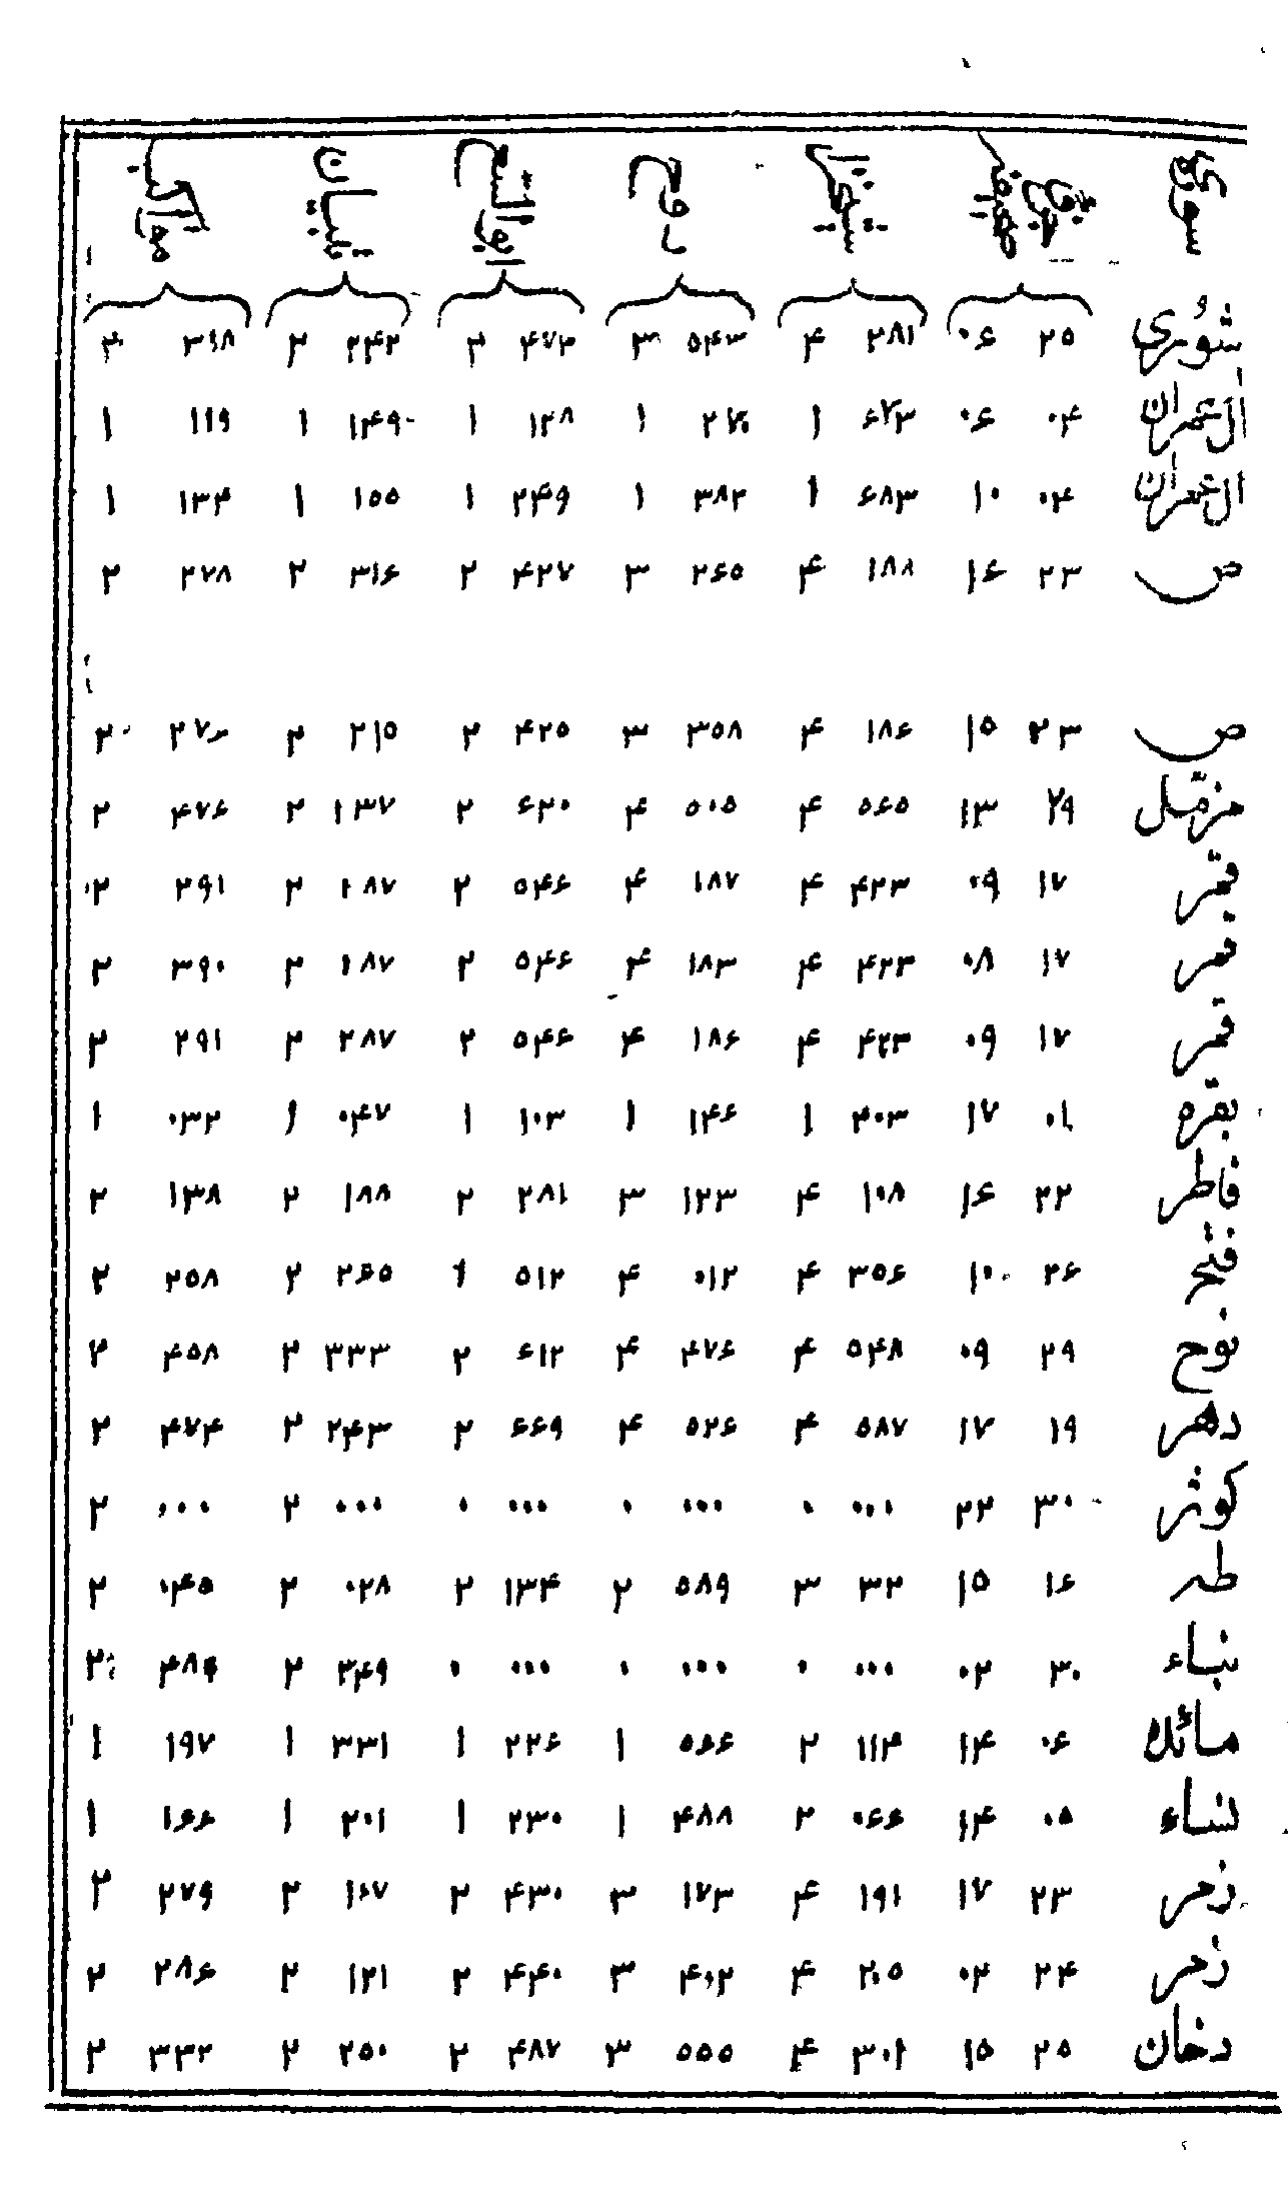 شوُرى ۲۵ ۰۶ ۲۸۱ ۴ ۵۴۳ ۳ ۴۷۲ ۲ ۲۴۲ ۲ ۳۱۸ ۲
ال عمران ۰۴ ۰۶ ۶۷۳ ۱ ۲۷۰ ۱ ۱۲۸ ۱ ۱۴۹ ۱ ۱۱۹ ۱
ال عمران ۰۴ ۱۰ ۶۸۳ ۱ ۳۸۲ ۱ ۲۴۹ ۱ ۱۵۵ ۱ ۱۳۴ ۱
ص ۲۳ ۱۶ ۱۸۸ ۴ ۲۶۵ ۳ ۴۲۷ ۲ ۳۱۶ ۲ ۲۷۸ ۲
ص ۲۳ ۱۵ ۱۸۶ ۴ ۳۵۸ ۳ ۴۲۵ ۲ ۲۱۵ ۲ ۲۷۶ ۲
مزمّل ۲۹ ۱۳ ۵۶۵ ۴ ۵۰۵ ۴ ۶۲۰ ۲ ۱۳۷ ۲ ۴۷۶ ۲
قمر ۱۷ ۰۹ ۴۲۳ ۴ ۱۸۷ ۴ ۵۴۶ ۲ ۲۸۷ ۲ ۲۹۱ ۲
قمر ۱۷ ۰۸ ۴۲۳ ۴ ۱۸۳ ۴ ۵۴۶ ۲ ۲۸۷ ۲ ۳۹۰ ۲
قمر ۱۷ ۰۹ ۴۲۳ ۴ ۱۸۶ ۴ ۵۴۶ ۲ ۲۸۷ ۲ ۲۹۱ ۲
بقره ۰۱ ۱۷ ۴۰۳ ۱ ۱۴۶ ۱ ۱۰۳ ۱ ۰۴۷ ۱ ۰۳۲ ۱
فاطر ۲۲ ۱۶ ۱۰۸ ۴ ۱۲۳ ۳ ۲۸۱ ۲ ۱۸۸ ۲ ۱۳۸ ۲
فتح ۲۶ ۱۰ ۳۵۶ ۴ ۰۱۲ ۴ ۵۱۲ ۲ ۲۶۵ ۲ ۲۵۸ ۲
نوح ۲۹ ۰۹ ۵۴۸ ۴ ۴۷۶ ۴ ۶۱۲ ۲ ۳۳۳ ۲ ۴۵۸ ۲
دهر ۱۹ ۱۷ ۵۸۷ ۴ ۵۲۶ ۴ ۶۶۹ ۲ ۲۴۳ ۲ ۴۷۴ ۲
کوثر ۳۰ ۲۲ ۰۰۰ ۰ ۰۰۰ ۰ ۰۰۰ ۰ ۰۰۰ ۲ ۰۰۰ ۲
طه ۱۶ ۱۵ ۳۲ ۳ ۵۸۹ ۲ ۱۳۴ ۲ ۰۲۸ ۲ ۰۴۵ ۲
نباء ۳۰ ۰۲ ۰۰۰ ۰ ۰۰۰ ۰ ۰۰۰ ۰ ۲۴۹ ۲ ۴۸۹ ۲
مائده ۰۶ ۱۴ ۱۱۴ ۲ ۵۶۶ ۱ ۲۲۶ ۱ ۳۳۱ ۱ ۱۹۷ ۱
نساء ۰۵ ۱۴ ۰۶۶ ۲ ۴۸۸ ۱ ۲۳۰ ۱ ۲۰۱ ۱ ۱۶۶ ۱
زمر ۲۳ ۱۷ ۱۹۱ ۴ ۱۷۳ ۳ ۴۳۰ ۲ ۱۰۷ ۲ ۲۷۹ ۲
زمر ۲۴ ۰۲ ۲۰۵ ۴ ۴۰۲ ۳ ۴۴۰ ۲ ۱۲۱ ۲ ۲۸۶ ۲
دخان ۲۵ ۱۵ ۳۰۱ ۴ ۵۵۵ ۳ ۴۸۷ ۲ ۲۵۰ ۲ ۳۳۲ ۲